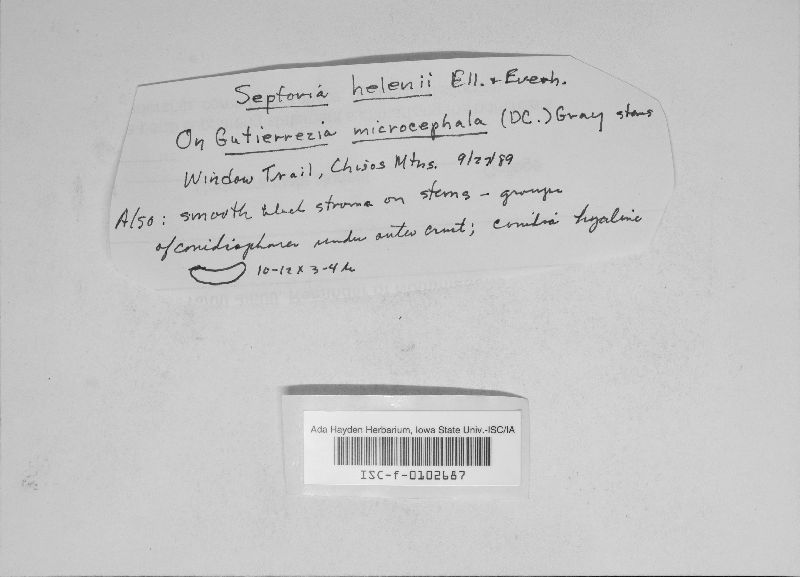 Septoria helenii Ell. & Everh.
On Gutierrezia microcephala (DC.) Gray stems
Window Trail, Chisos Mtns. 9/27/89
Also: smooth black stroma on stems - groups
of conidiophores under outer crust; conidia hyaline
10-12 x 3-4 μ
Ada Hayden Herbarium, Iowa State Univ.-ISC/IA
ISC-f-0102687